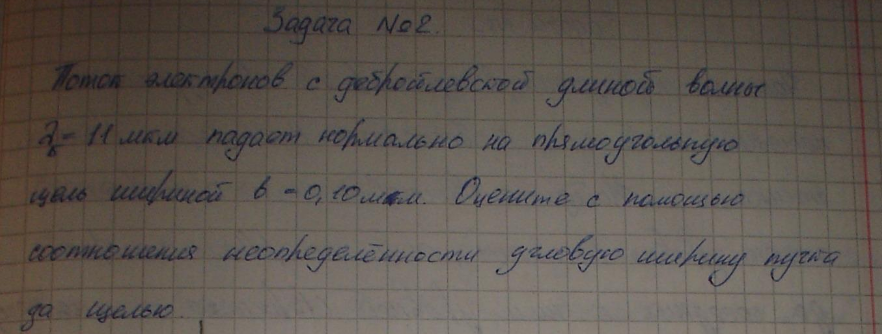 Задача №2.
Поток электронов с дебройлевской длиной волны
λб = 11 мкм падает нормально на прямоугольную
щель шириной b = 0,10 мкм. Оцените с помощью
соотношения неопределённости угловую ширину пучка
за щелью.